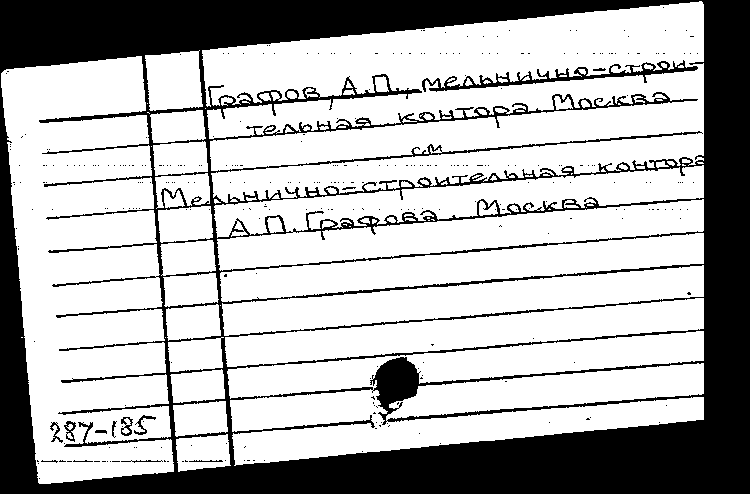 Графов, А.П., мельнично-строи-
тельная контора. Москва
см.
Мельнично-строительная контора
А.П. Графова. Москва
287-185